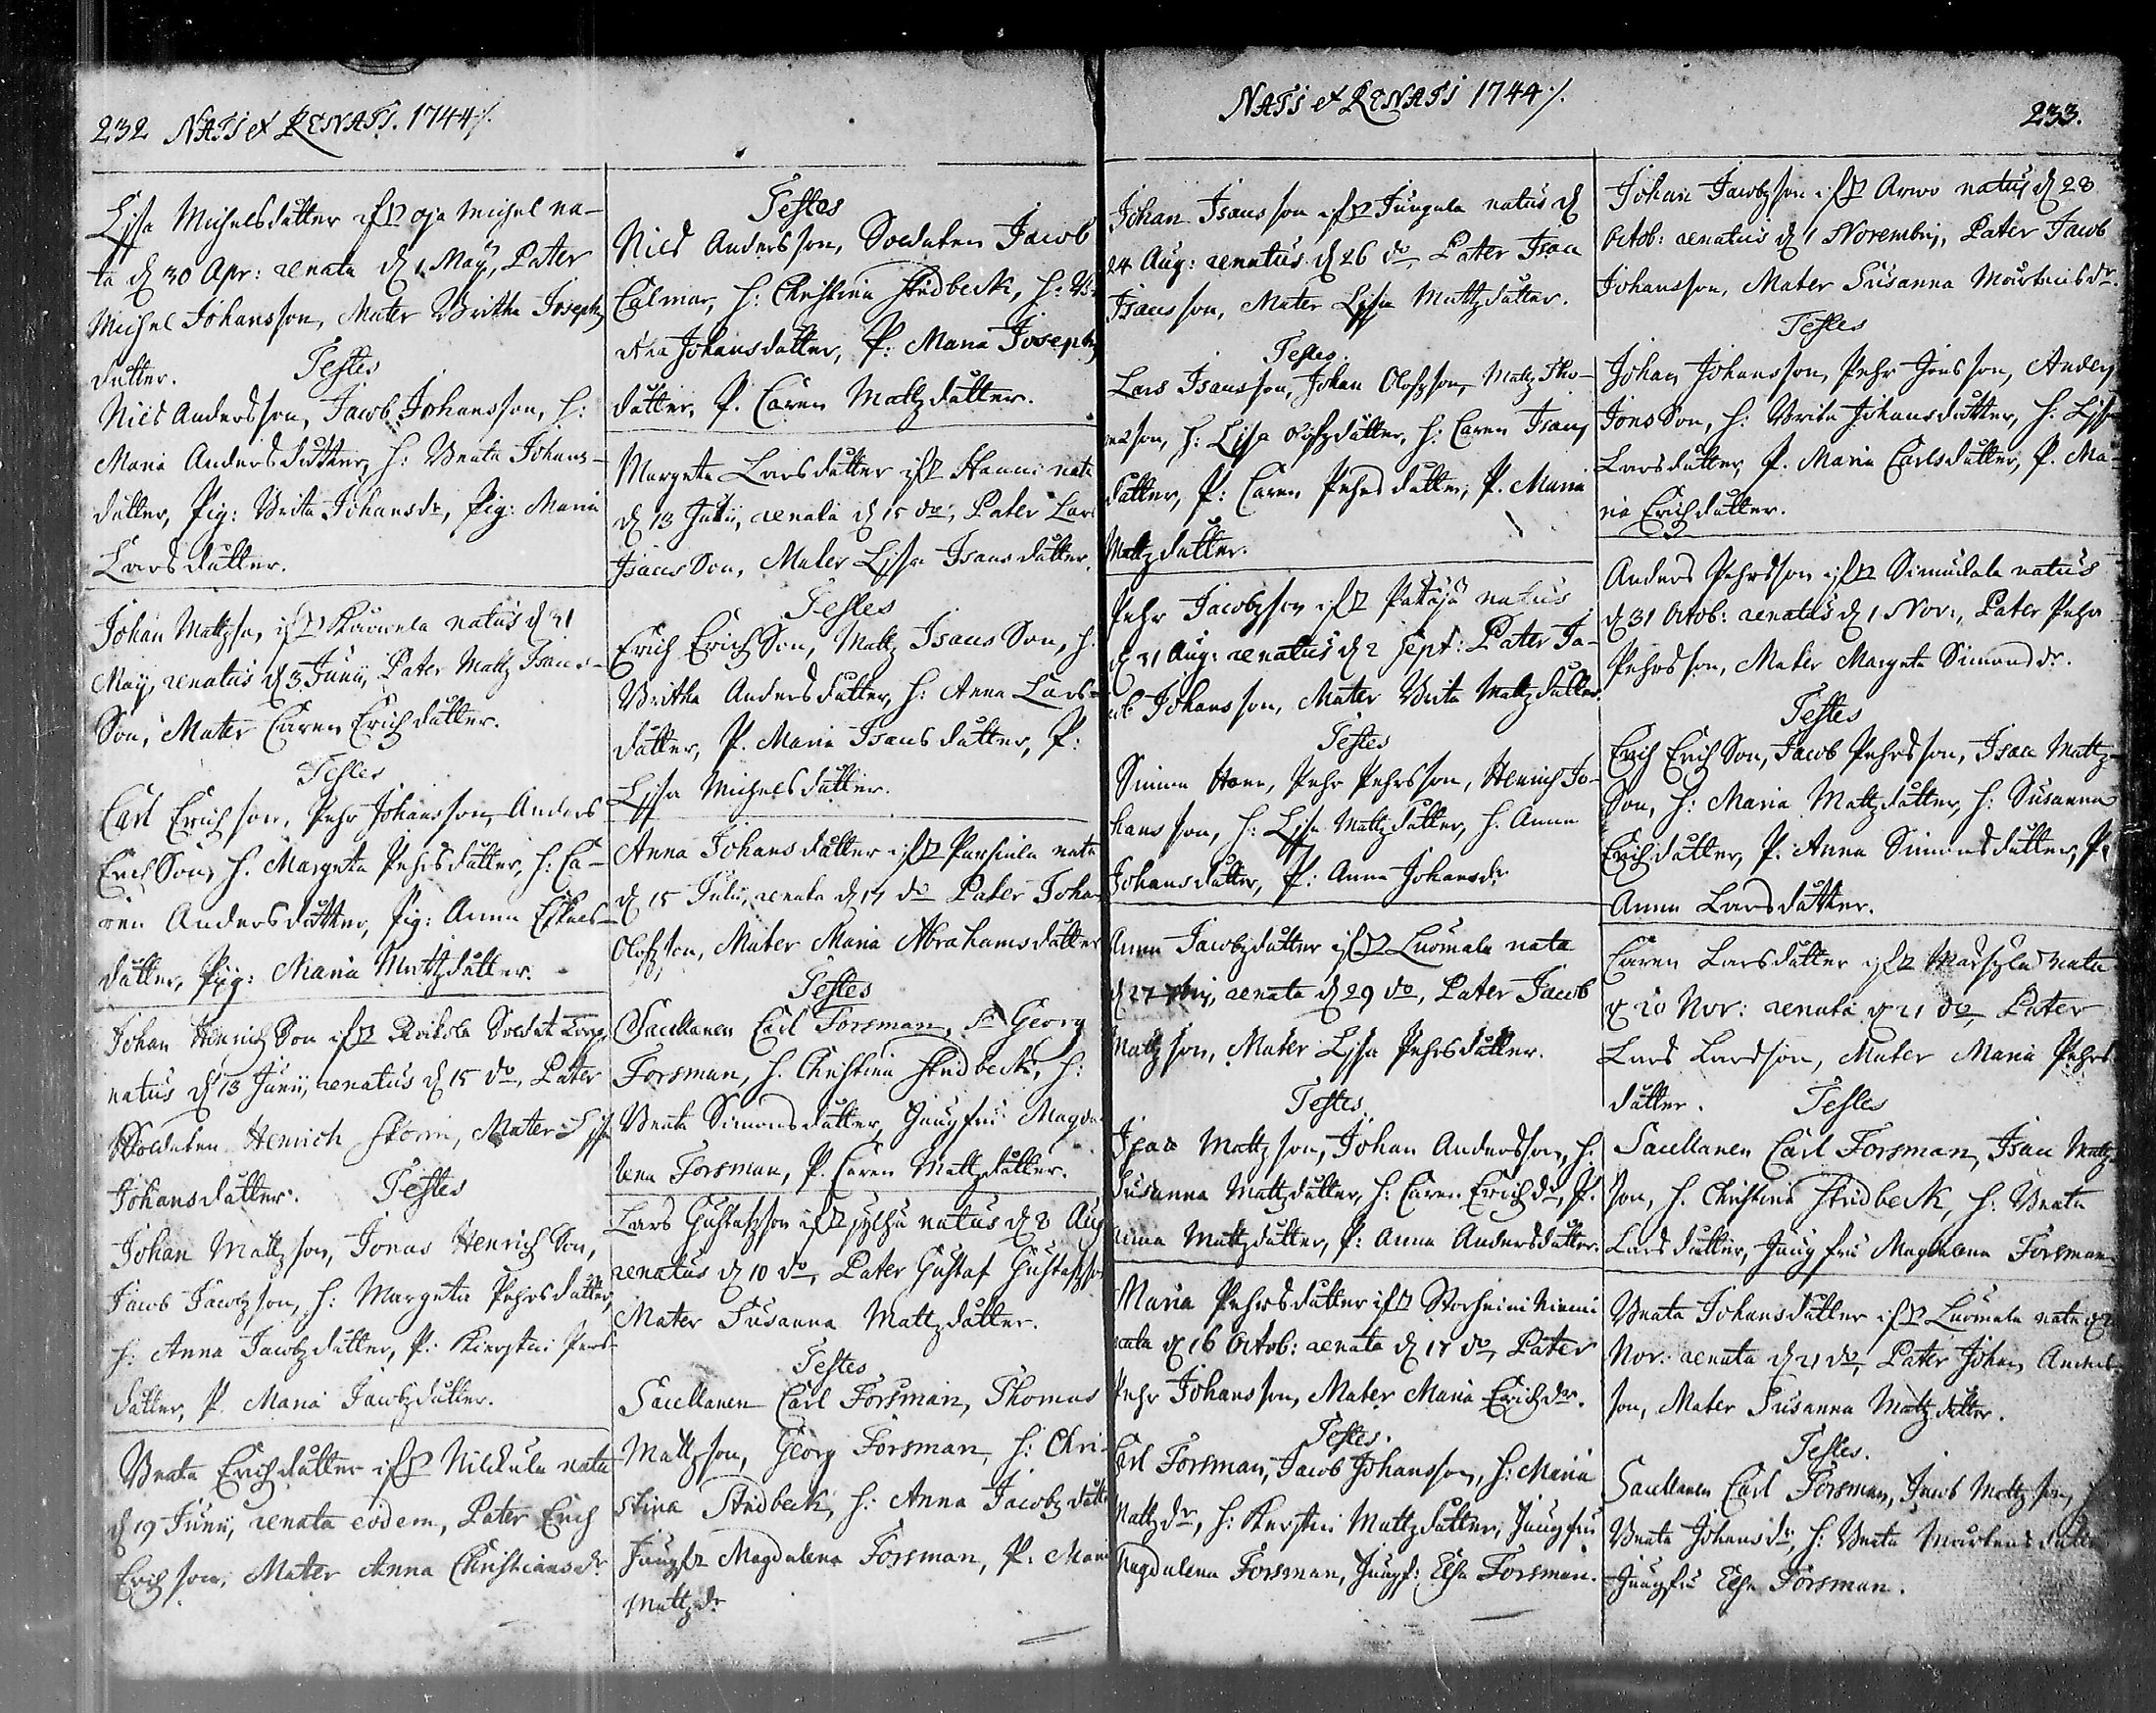 232 NATI et RENATI. 1744 ⁒.
Lisa Michelsdåtter ifr. Oja Michel na-
ta d 30 Apr: renata d 1 Maÿ, Pater
Michel Johansson, Mater Britha Josephs
dåtter. Testes
Nils Andersson, Jacob Johansson, h:
Maria Andersdåtter, h: Beata Johans-
dåtter, Pig: Brita Johansdr, Pig: Maria
Larsdåtter.
Johan Mattzson, ifr. natus d 31
Maÿ, renatus d 3 Junii, Pater Mattz Isacs-
Son, Mater Caren Erichdåtter.
Testes
Carl Erichson, Pehr Johansson, Anders
ErichSon, h. Margeta Pehrsdåtter, h: Ca-
ren Andersdåtter, Pig: Anna
dåtter, Pig: Maria Mattzdåtter.
Johan HenrichSon ifr. Soldat
natus d 13 Junii, renatus d 15 do, Pater
Soldaten Henrich Storm, Mater Lisa
Johansdåtter. Testes
Johan Mattzson, Jonas HenrichSon,
Jacob Jacobzson, h: Margeta Pehrsdåtter,
h: Anna Jacobzdåtter, P: Kierstin Pers-
dåtter, P. Maria Jacobzdåtter.
Beata Erichdåtter ifr. Nickula nata
d 19 Junii, renata eodem, Pater Erich
Erichson, Mater Anna Christiansdr
Testes
Nils Andersson, Soldaten Jacob
Calmar, h: Christina Stridbeck, h: B
Johansdåtter, P: Maria Josephs
dåtter, P. Caren Mattzdåtter.
Margeta Larsdåtter ifr. Hanni nata
d 13 Julii, renata d 15 do, Pater Lars
IsacsSon, Mater Lisa Isacsdåtter.
Testes
Erich ErichSon, Mattz IsacsSon, h.
Britha Andersdåtter, h: Anna Lars-
dåtter, P. Maria Isacsdåtter, P:
Lisa Michelsdåtter.
Anna Johansdåtter ifr. Parsiala nata
d 15 Julii, renata d 17 do Pater Johan
Olofzson, Mater Maria Abrahamsdåtter
Testes
Sacellanen Carl Forsman, Georg
Forsman, h. Christina Stridbeck, h:
Beata Simonsdåtter, Jungfru Magda-
lena Forsman, P. Caren Mattzdåtter.
Lars Gustafzson ifr. natus d 8 Aug
renatus d 10 do, Pater Gustaf Gustafzson
Mater Susanna Mattzdåtter.
Testes
Sacellanen Carl Forsman, Thomas
Mattzson, Georg Forsman, h: Chri-
stina Stridbeck, h: Anna Jacobzdåtter
Jungfr Magdalena Forsman, P: Maria
Mattzdr
NATI et RENATI 1744 ⁒.
Johan Isacsson ifr. Jungala natus d
24 Aug: renatus d 26 do Pater Isac
Isacsson, Mater Lisa Mattzdåtter.
Testes.
Lars Isacsson, Johan Olofzson, Mattz Tho-
masson, h: Lisa Olofzdåtter, h: Caren Isacs
dåtter, P: Caren Pehrsdåtter, P. Maria
Mattzdåtter.
Pehr Jacobzson ifr. Pattaja natus
d 31 Aug: renatus d 2 Sept: Pater Ja-
cob Johansson, Mater Brita Mattzdåtter.
Testes
Simon, Pehr Pehrsson, Henrich Jo-
hansson, h: Lisa Mattzdåtter, h. Anna
Johansdåtter, P: Anna Johansdr
Anna Jacobzdåtter ifr. Luomala nata
d 27 7bris, renata d 29 do, Pater Jacob
Mattzson, Mater Lisa Pehrsdåtter.
Testes.
Isac Mattzson, Johan Andersson, h.
Susanna Mattzdåtter, h: Caren Erichdr, P.
Anna Mattzdåtter, P: Anna Andersdåtter.
Maria Pehrsdåtter ifr. Storheininiemi
nata d 16 Octob: renata d 17 do, Pater
Pehr Johansson, Mater Maria Erichdr.
Testes.
Carl Forsman, Jacob Johansson, h: Maria
Mattzdr, h: Kerstin Mattzdåtter, Jungfru
Magdalena Forsman, Jungf: Elsa Forsman.
233.
Johan Jacobzson ifr. Arwo natus d 28
Octob: renatus d 1 Novembris, Pater Jacob
Johansson, Mater Susanna Mårtensdr.
Testes
Johan Johansson, Pehr Jönsson, Anders
JönsSon, h: Brita Johansdåtter, h. Lisa
Larsdåtter, P. Maria Carlsdåtter, P. Ma-
ria Erichdåtter.
Anders Pehrsson ifr. Simudala natus
d 31 Octob: renatus d 1 Nov:, Pater Pehr
Pehrsson, Mater Margeta Simonsdr.
Testes
Erich ErichSon, Jacob Pehrsson, Isac Mattz-
Son, h: Maria Mattzdåtter, h: Susanna
Erichdåtter, P. Anna Simonsdåtter, P:
Anna Larsdåtter.
Caren Larsdåtter ifr. nata
d 20 Nov: renata d 21 do, Pater
Lars Larsson, Mater Maria Pehrs
dåtter. Testes
Sacellanen Carl Forsman, Isac Mattz-
son, h. Christina Stridbeck, h: Beata
Larsdåtter, Jungfru Magdalena Forsman
Beata Johansdåtter ifr. Luomala nata d
Nov: renata d 21 do, Pater Johan Anders-
son, Mater Susanna Mattzdåtter.
Testes.
Sacellanen Carl Forsman, Jacob Mattzson,
Beata Johansdr, h: Beata Mårtensdåtter
Jungfru Elsa Forsman.